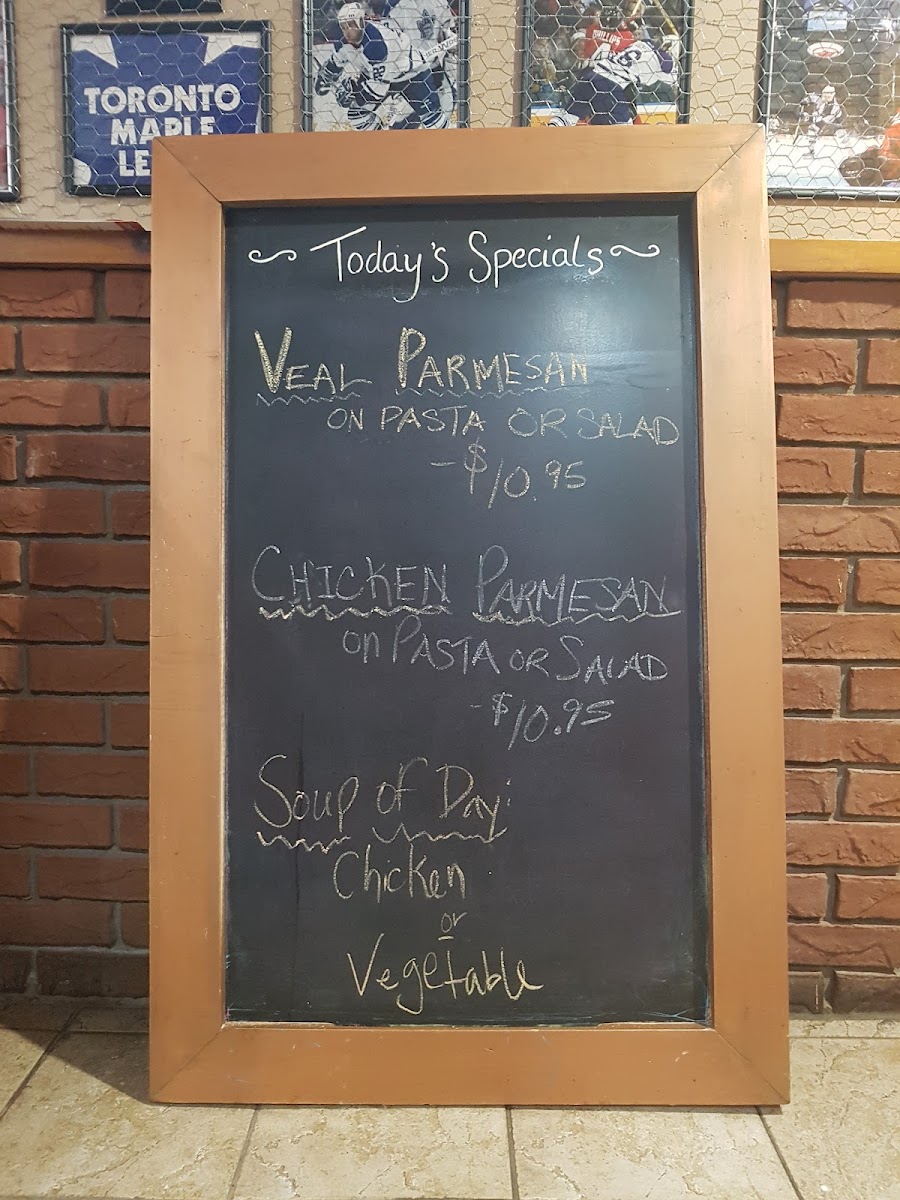 TORONTO
MAPLE
LE
PHILLIPS
~ Today's Specials ~
VEAL PARMESAN
ON PASTA OR SALAD
- $10.95
CHICKEN PARMESAN
on PASTA OR SALAD
- $10.95
Soup of Day:
Chicken
or
Vegetable